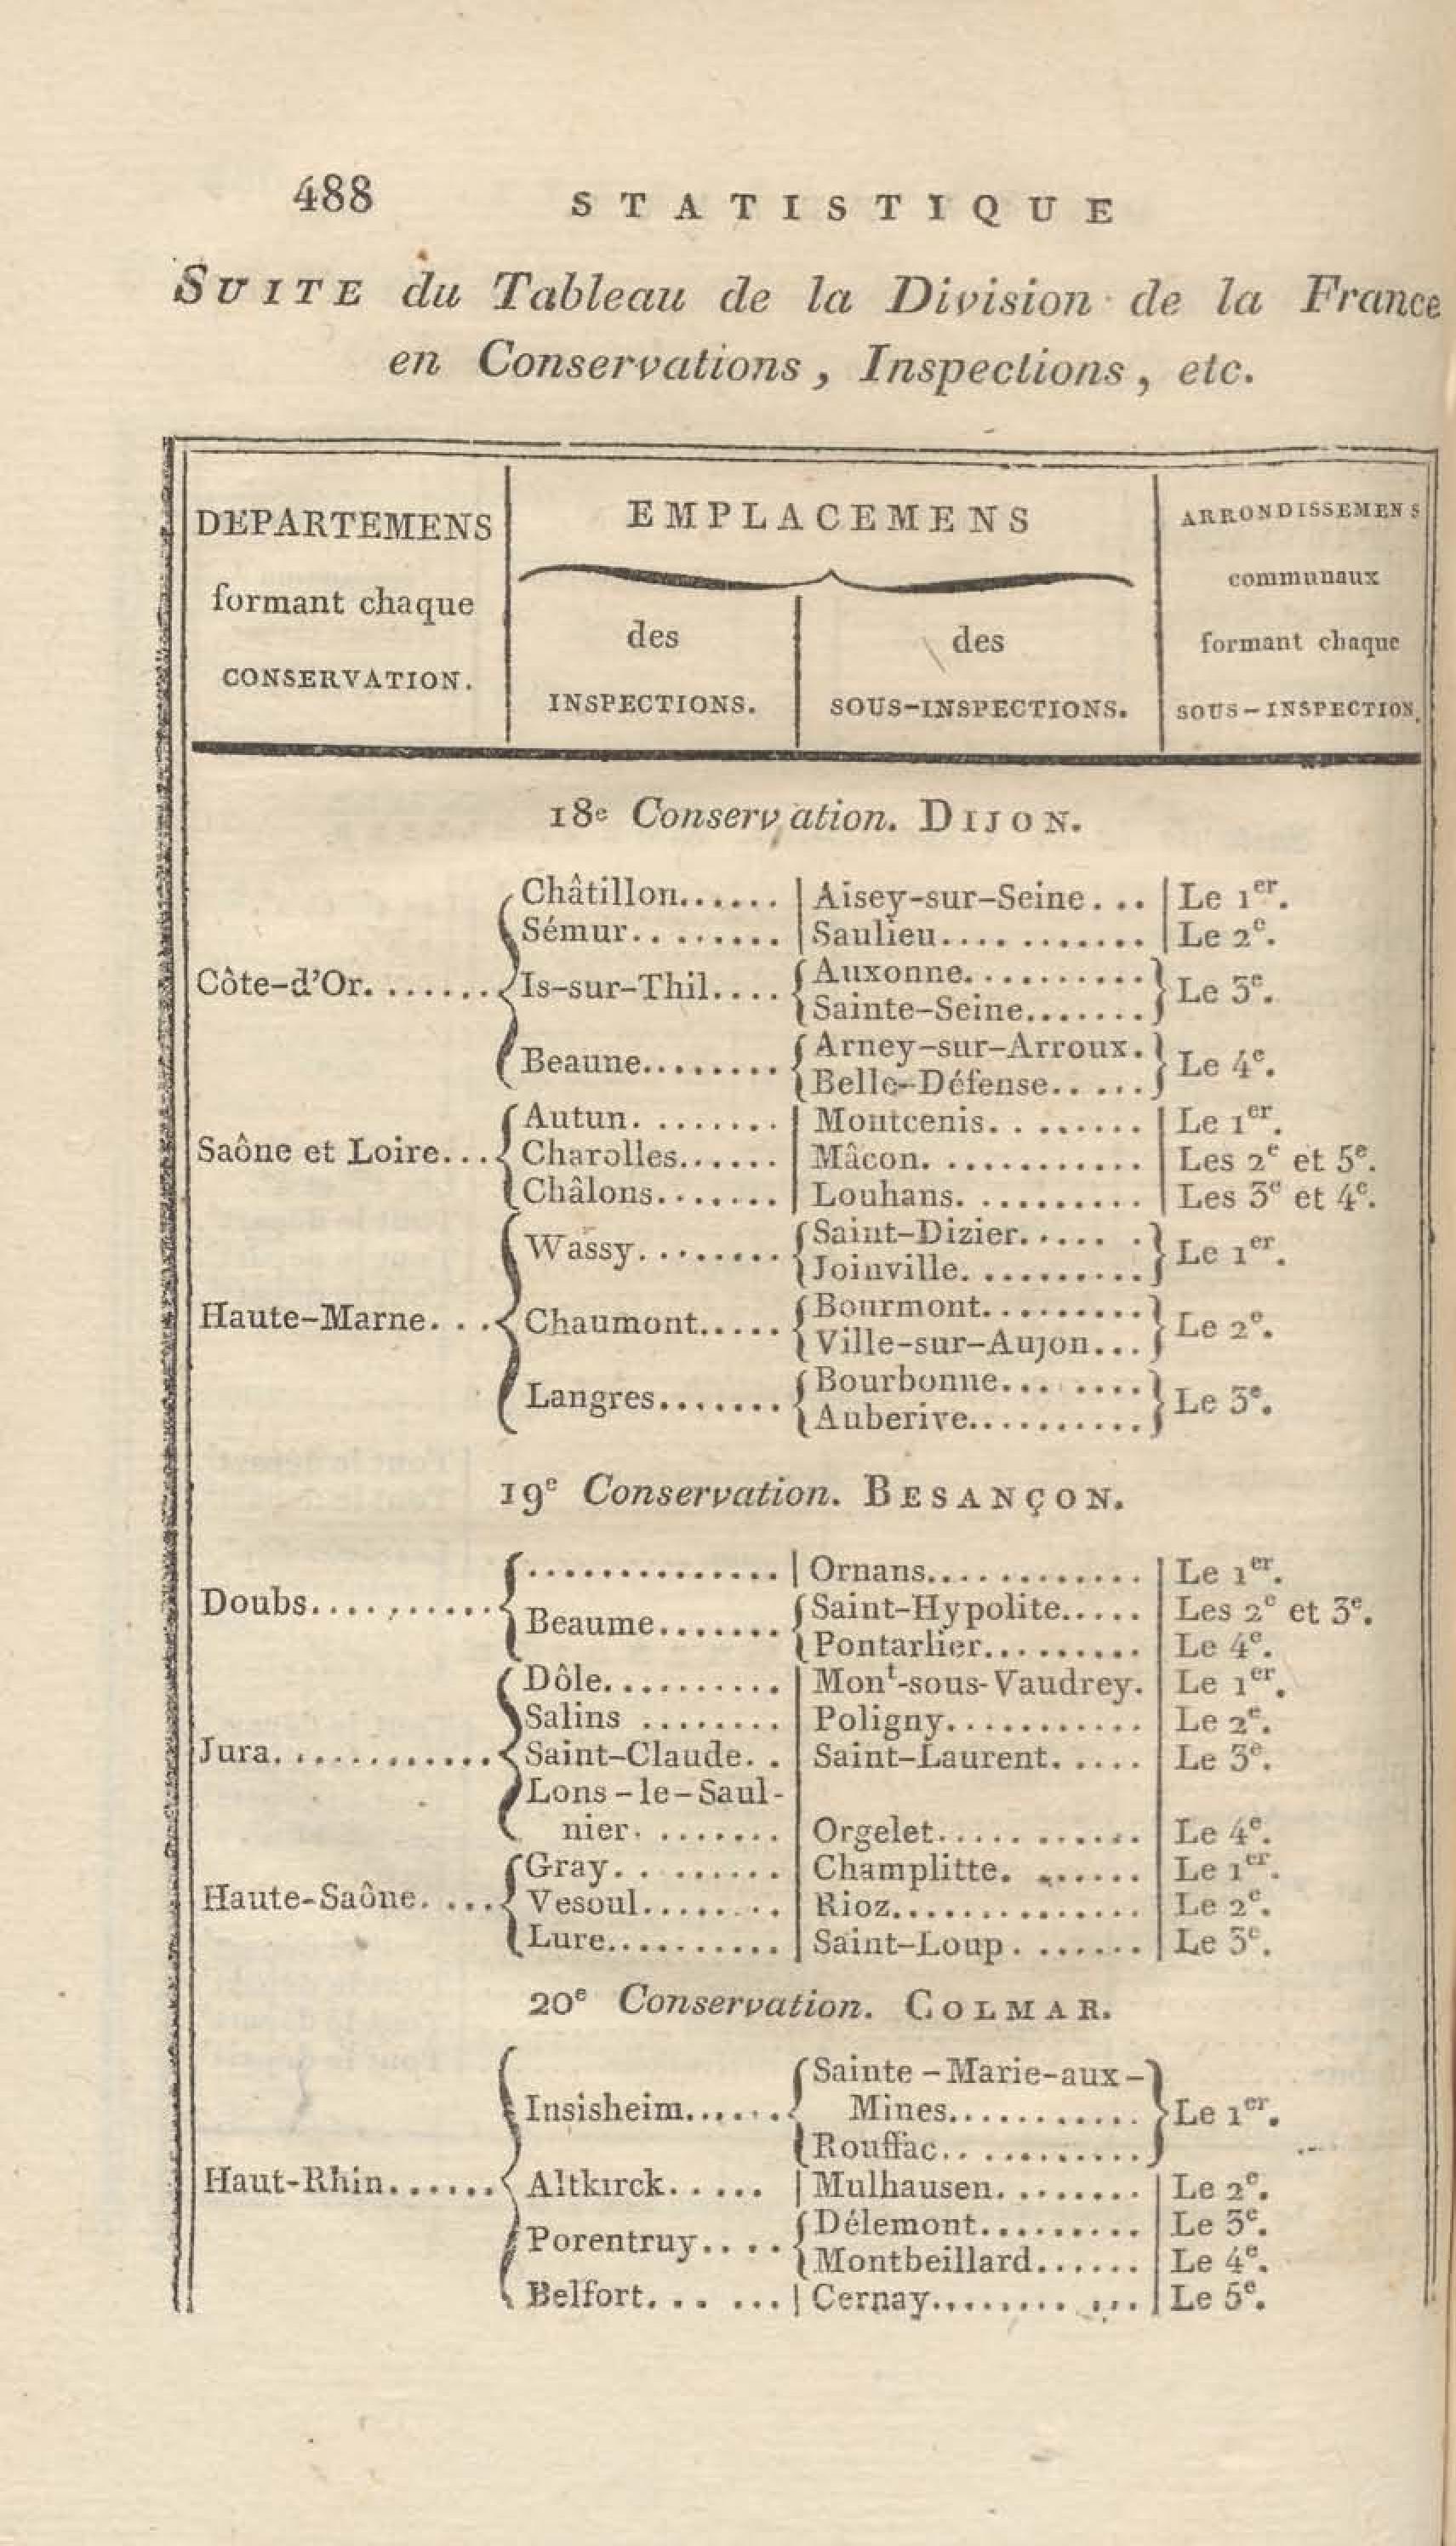 488 STATISTIQUE
SUITE du Tableau de la Division de la France
en Conservations, Inspections, etc.
DEPARTEMENS
formant chaque
CONSERVATION.
EMPLACEMENS
des
INSPECTIONS.
des
SOUS-INSPECTIONS.
ARRONDISSEMENS
communaux
formant chaque
SOUS-INSPECTION.
18e Conservation. DIJON.
Châtillon...... Aisey-sur-Seine... Le 1er.
Sémur......... Saulieu............ Le 2e.
Côte-d'Or........ Is-sur-Thil.... Auxonne.......... Le 3e.
Sainte-Seine.......
Beaune........ Arney-sur-Arroux. Le 4e.
Belle-Défense......
Autun......... Montcenis......... Le 1er.
Saône et Loire... Charolles...... Mâcon............. Les 2e et 5e.
Châlons....... Louhans........... Les 3e et 4e.
Wassy........ Saint-Dizier...... Le 1er.
Joinville...........
Haute-Marne.... Chaumont..... Bourmont......... Le 2e.
Ville-sur-Aujon...
Langres....... Bourbonne....... Le 3e.
Auberive..........
19e Conservation. BESANÇON.
.............. Ornans............ Le 1er.
Doubs........... Beaume....... Saint-Hypolite..... Les 2e et 3e.
Pontarlier......... Le 4e.
Dôle.......... Mont-sous-Vaudrey. Le 1er.
Salins ........ Poligny........... Le 2e.
Jura............ Saint-Claude.. Saint-Laurent..... Le 3e.
Lons-le-Saul-
nier........ Orgelet........... Le 4e.
Gray......... Champlitte. ...... Le 1er.
Haute-Saône..... Vesoul........ Rioz.............. Le 2e.
Lure.......... Saint-Loup........ Le 3e.
20e Conservation. COLMAR.
Sainte-Marie-aux-
Insisheim...... Mines........... Le 1er.
Rouffac............
Haut-Rhin...... Altkirck...... Mulhausen........ Le 2e.
Porentruy.... Délemont......... Le 3e.
Montbeillard...... Le 4e.
Belfort... ... Cernay........... Le 5e.